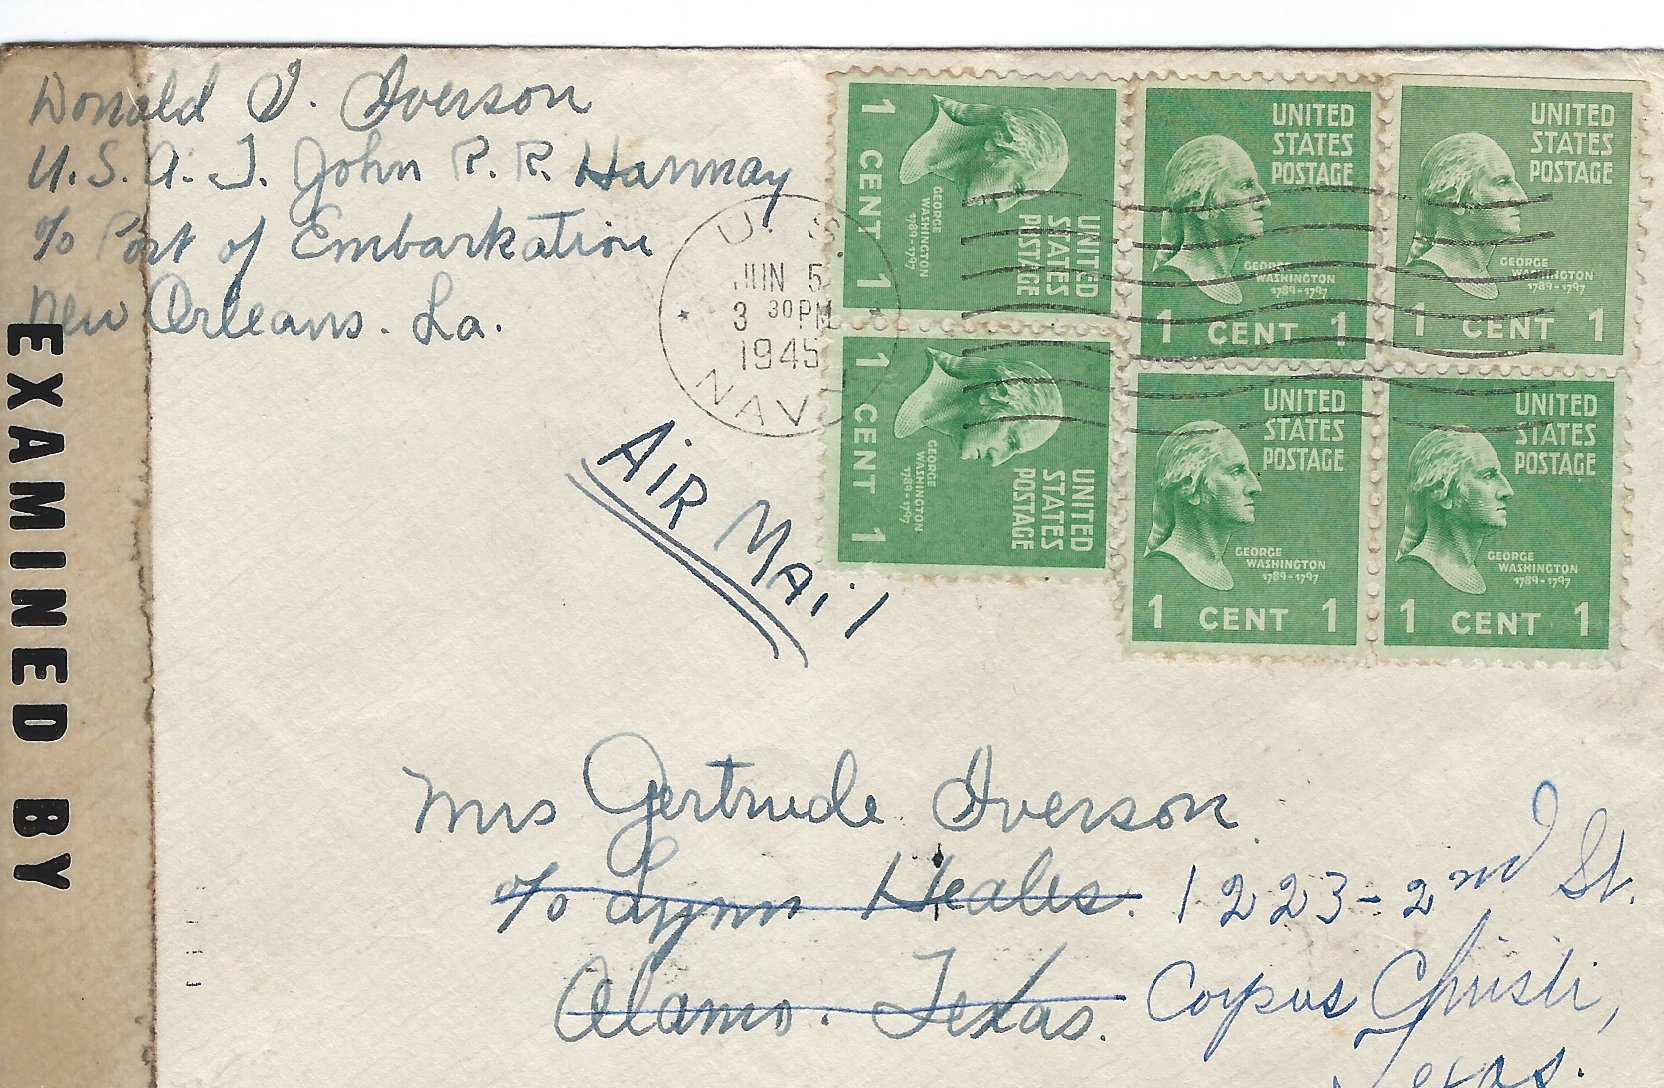 Donald I. Iverson
U.S.A.T. John R. R. Hannay
c/o Port of Embarkation
New Orleans. La.
EXAMINED BY
U. S.
JUN 5
3 30 PM
1945
NAVY
AiR MAil
UNITED STATES POSTAGE
GEORGE WASHINGTON
1789-1797
1 CENT 1
UNITED STATES POSTAGE
GEORGE WASHINGTON
1789-1797
1 CENT 1
UNITED STATES POSTAGE
GEORGE WASHINGTON
1789-1797
1 CENT 1
UNITED STATES POSTAGE
GEORGE WASHINGTON
1789-1797
1 CENT 1
UNITED STATES POSTAGE
GEORGE WASHINGTON
1789-1797
1 CENT 1
UNITED STATES POSTAGE
GEORGE WASHINGTON
1789-1797
1 CENT 1
Mrs Gertrude Iverson
c/o Lynn Heales. 1223-2nd St.
Alamo. Texas. Corpus Christi,
Texas.